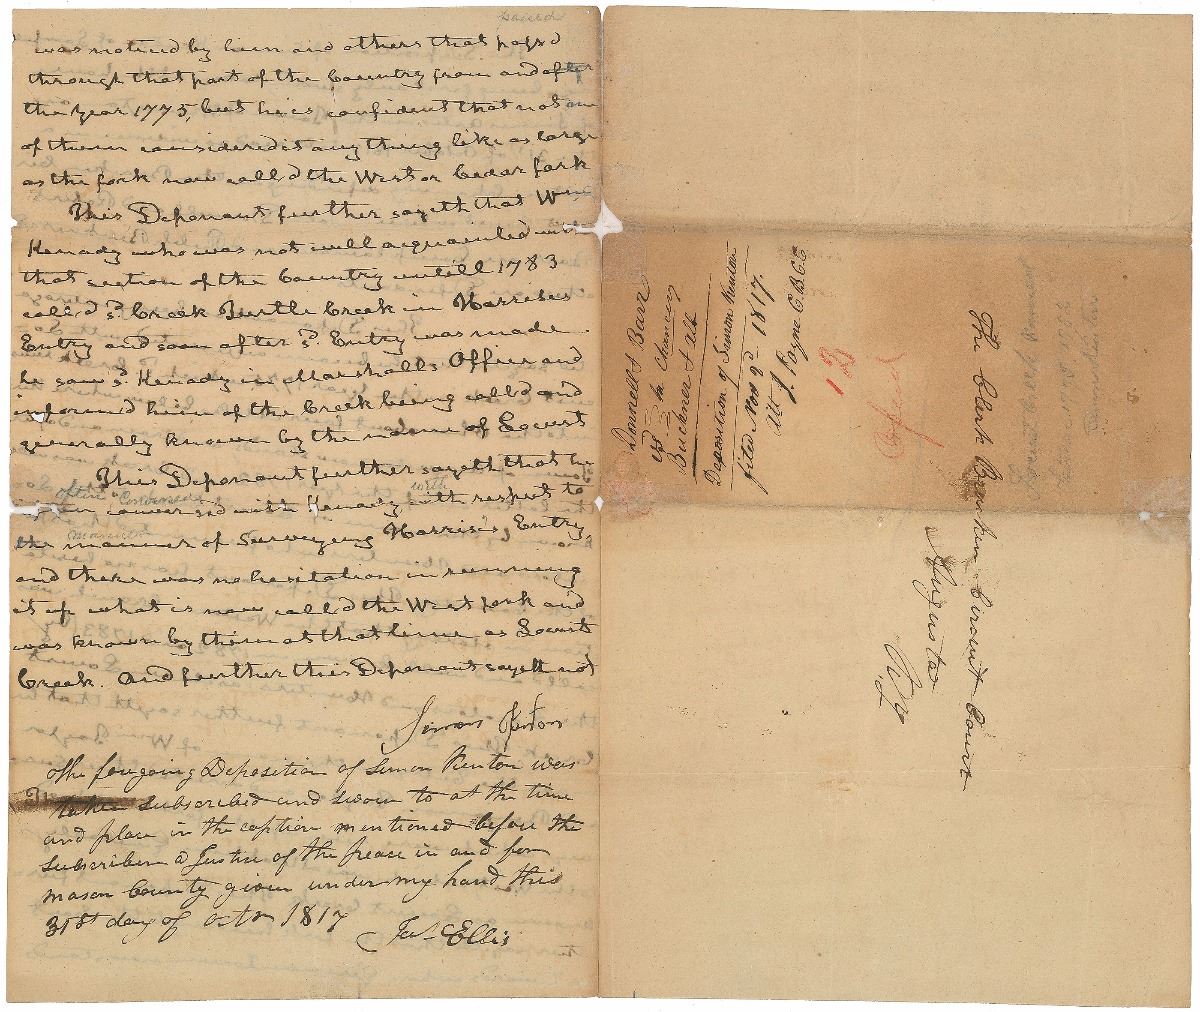 was noticed by him and others that pass'd
through that part of the Country from and after
the year 1775, but he is confident that not one
of them considered it any thing like as large
as the fork now call'd the West or Cedar fork
This Deponant further sayeth that Wm
Kenady who was not well acquainted with
that section of the Country untill 1783
call'd sd. Creek Turtle Creek in Harrises
Entry and soon after sd. Entry was made
he saw sd. Kenady in Marshalls Office and
informd him of the Creek being call'd and
generally known by the name of Locust
This Deponant further sayeth that he
often conversed with
often convers'd with Kenady with respect to
manner
the manner of Surveying Harrises, Entry,
and there was no hesitation in running
it up what is now call'd the West fork and
was known by them at that time as Locust
Creek. And further this Deponant sayeth not
Simon Kenton
The foregoing Deposition of Simon Kenton was
taken subscribed and sworn to at the time
and place in the caption mentioned before the
Subscriber a Justice of the peace in and for
mason County given under my hand this
31st day of Octr 1817
Jas Ellis
Donnell & Barr
vs In Chancery
Buckner & als
Deposition of Simon Kenton
filed Nov 9d 1817.
Att J. Payne C.B.C.C
13
Copied
The Clerk Bracken Circuit Court
Augusta
Ky